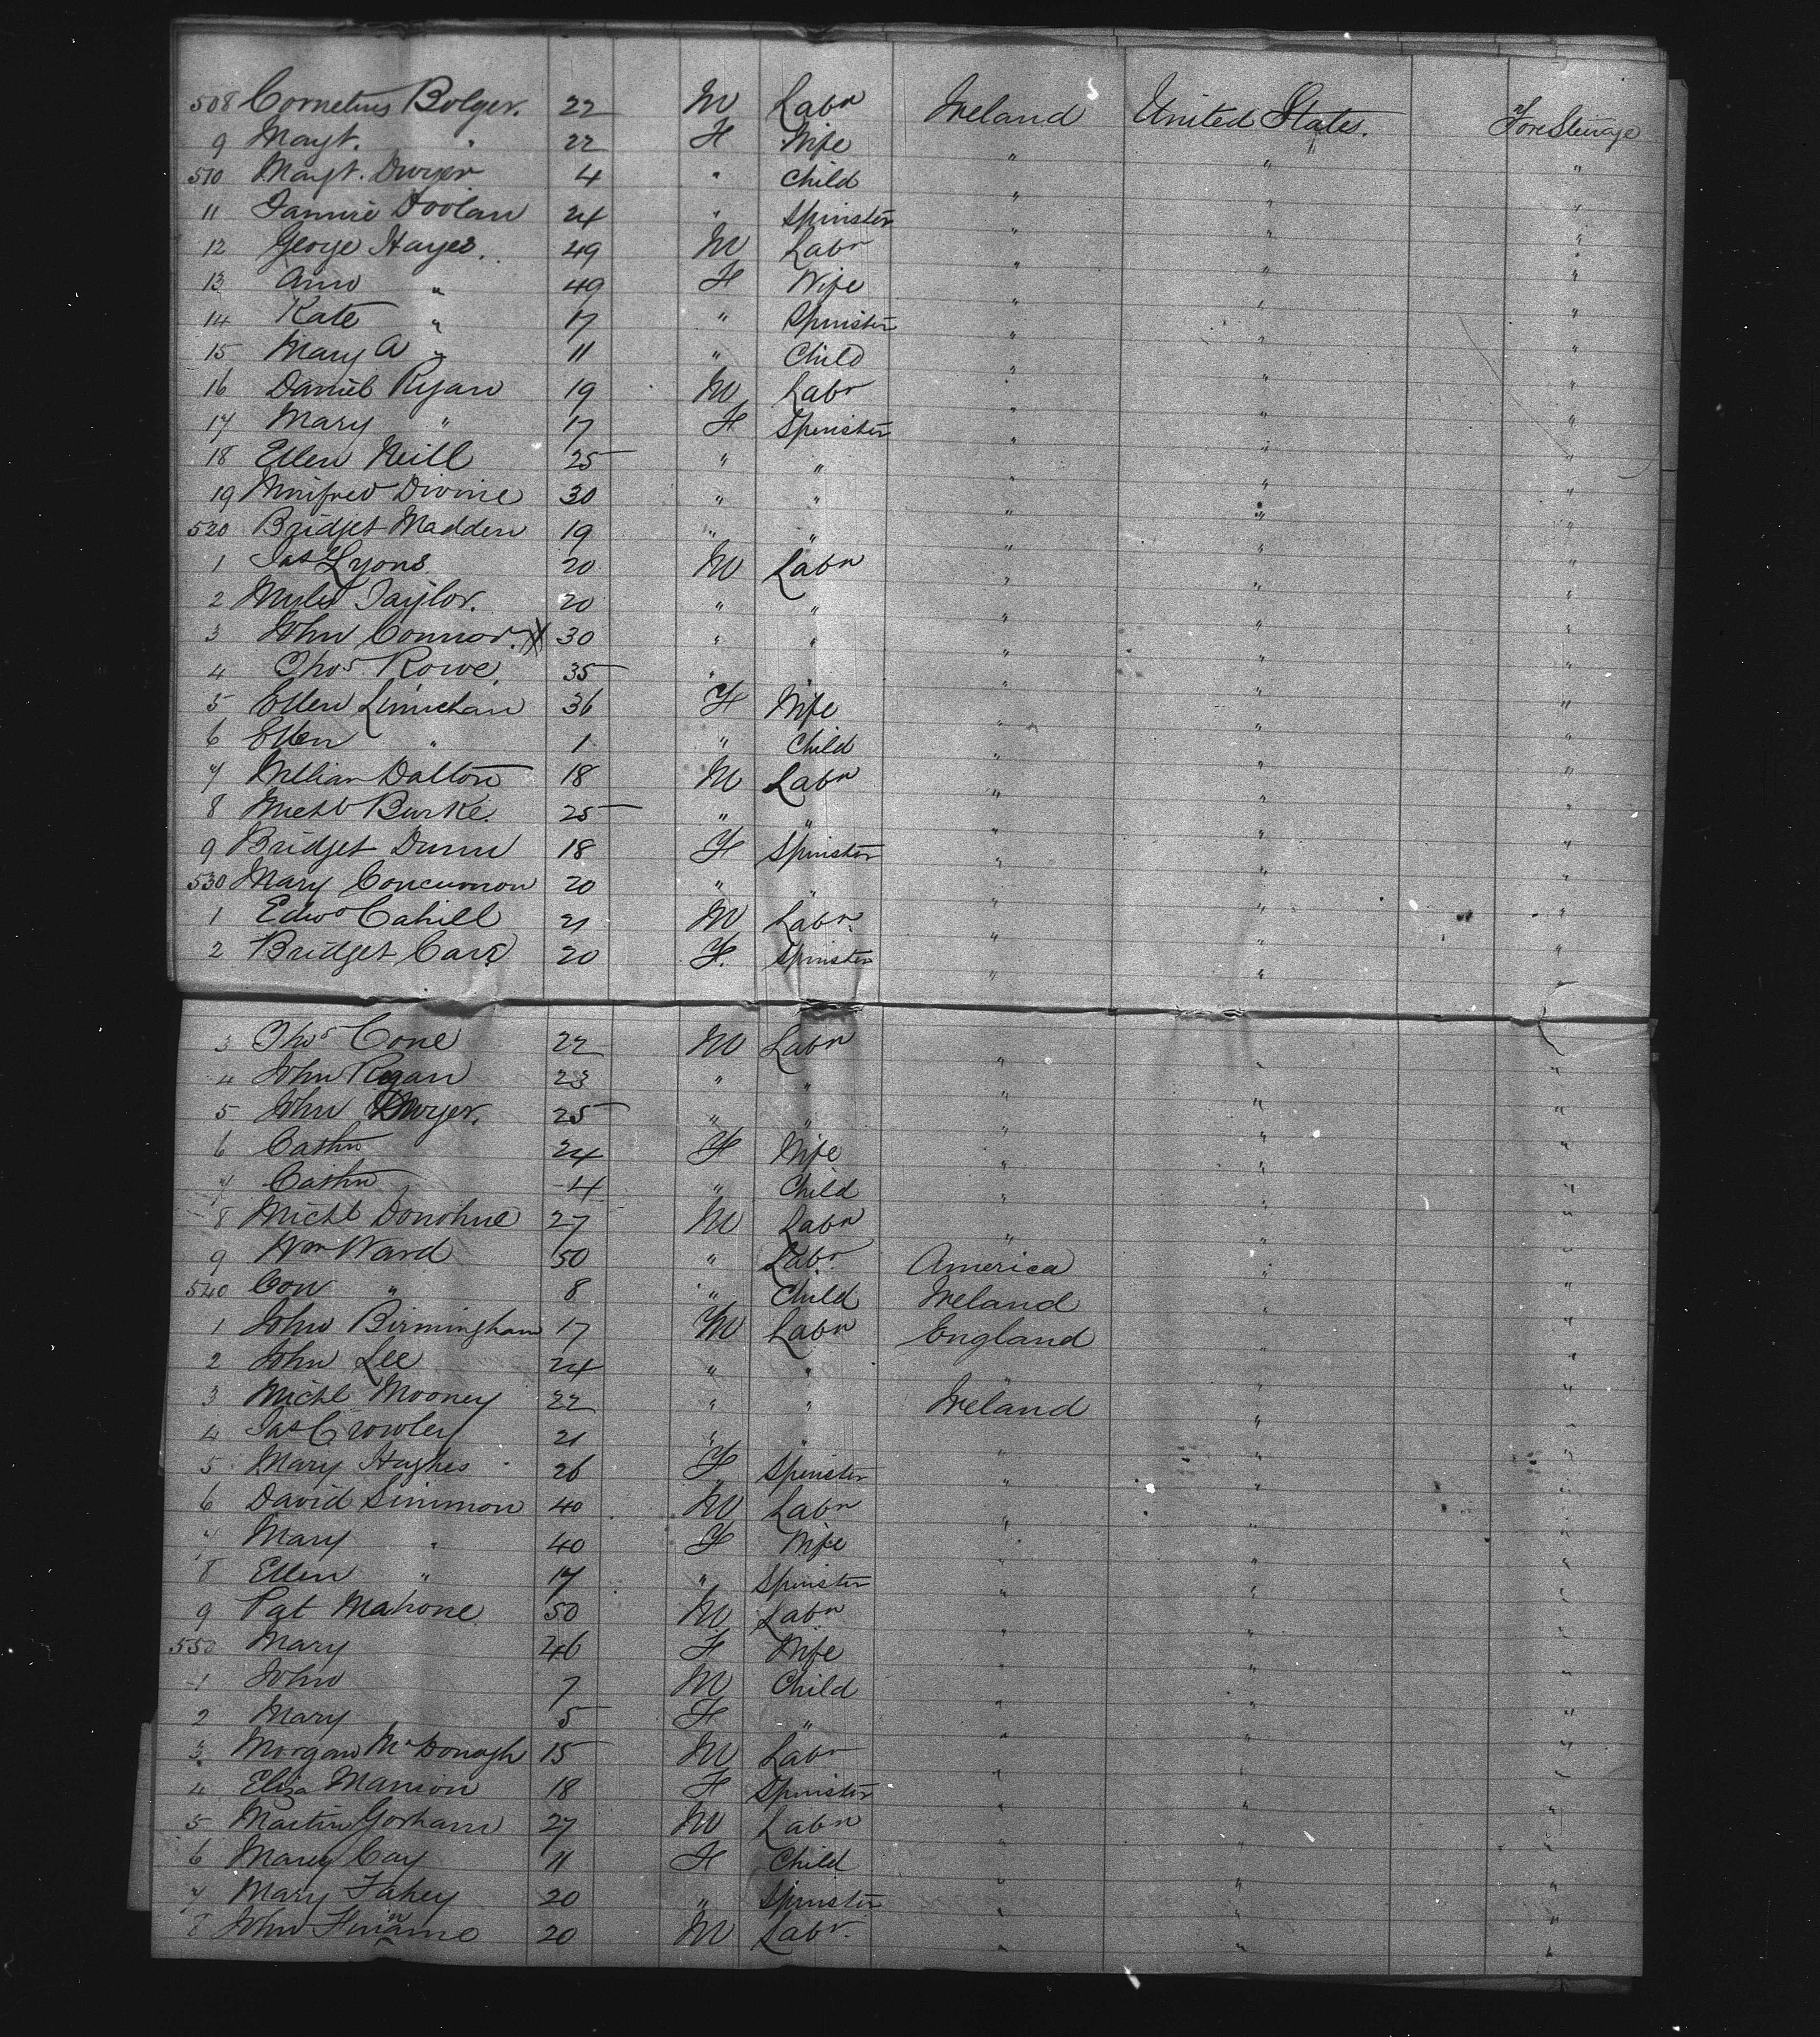 508 Cornelius Bolger. 22 M Labr Ireland United States. Fore Steerage
9 Margt. " 22 F Wife " " "
510 Margt. Dwyer 4 " Child " " "
11 Fannie Doolan 24 " Spinster " " "
12 George Hayes. 49 M Labr " " "
13 Ann " 49 F Wife " " "
14 Kate " 17 " Spinster " " "
15 Mary A " 11 " Child " " "
16 Daniel Ryan 19 M Labr " " "
17 Mary " 17 F Spinster " " "
18 Ellen Neill 25 " " " " "
19 Winifred Divine 30 " " " " "
520 Bridget Madden 19 " " " " "
1 Jas Lyons 20 M Labr " " "
2 Myles Taylor. 20 " " " " "
3 John Connor. X 30 " " " " "
4 Thos. Rowe. 35 " " " " "
5 Ellen Linnehan 36 F Wife " " "
6 Ellen " 1 " Child " " "
7 William Dalton 18 M Labr " " "
8 Michl Burke. 25 " " " " "
9 Bridget Dunn 18 F Spinster " " "
530 Mary Concannon 20 " " " " "
1 Edwd Cahill 21 M Labr. " " "
2 Bridget Carr 20 F. Spinster " " "
3 Thos Cone 22 M Labr " " "
4 John Regan 23 " " " " "
5 John Dwyer. 25 " " " " "
6 Cathn 24 F Wife " " "
7 Cathn 4 " Child " " "
8 Michl Donohue 27 M Labr " " "
9 Wm Ward 50 " Labr. America " "
540 Con " 8 " Child Ireland " "
1 John Birmingham 17 M Labr England " "
2 John Lee 24 " " " " "
3 Michl Mooney 22 " " Ireland " "
4 Jas Crowley 21 " " " " "
5 Mary Hughes 26 F Spinster " " "
6 David Sinnnon 40 M Labr " " "
7 Mary " 40 F Wife " " "
8 Ellen " 17 " Spinster " " "
9 Pat Mahone 50 M Labr " " "
550 Mary 46 F Wife " " "
1 John 7 M Child " " "
2 Mary 5 F " " " "
3 Morgan McDonagh 15 M Labr " " "
4 Eliza Mannion 18 F Spinster " " "
5 Martin Gorham 27 M Labr " " "
6 Mary Cay 11 F Child " " "
7 Mary Fahey 20 " Spinster " " "
8 John 20 M Labr. " " "